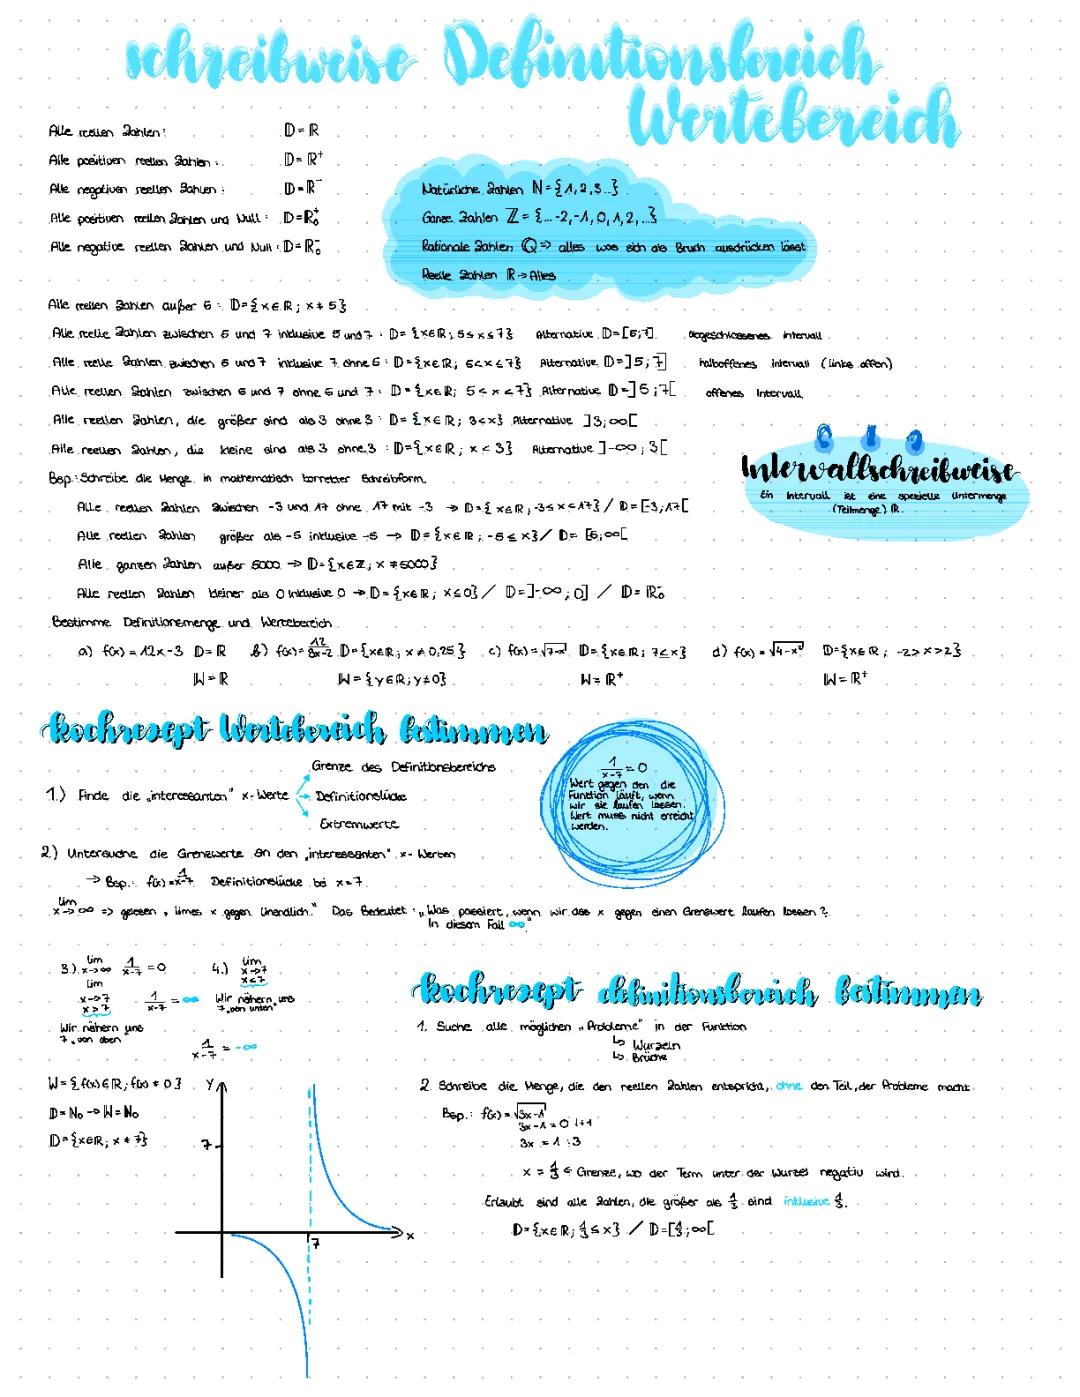 schreibweise Definitionsbereich
Wertebereich
Alle reellen Zahlen: D = ℝ
Alle positiven reellen Zahlen: D = ℝ⁺
Alle negativen reellen Zahlen: D = ℝ⁻
Alle positiven reellen Zahlen und Null: D = ℝ₀⁺
Alle negative reellen Zahlen und Null: D = ℝ₀⁻
Natürliche Zahlen ℕ = {1,2,3...}
Ganze Zahlen ℤ = {...-2,-1,0,1,2,...}
Rationale Zahlen ℚ => alles was sich als Bruch ausdrücken lässt
Reelle Zahlen ℝ → Alles
Alle reellen Zahlen außer 5: D = {x∈ℝ; x ≠ 5}
Alle reelle Zahlen zwischen 5 und 7 inklusive 5 und 7: D = {x∈ℝ; 5 ≤ x ≤ 7} Alternative D = [5;7] abgeschlossenes Intervall
Alle reelle Zahlen zwischen 5 und 7 inklusive 7 ohne 5: D = {x∈ℝ; 5 < x ≤ 7} Alternative D = ]5;7] halboffenes Intervall (links offen)
Alle reellen Zahlen zwischen 5 und 7 ohne 5 und 7: D = {x∈ℝ; 5 < x < 7} Alternative D = ]5;7[ offenes Intervall
Alle reellen Zahlen, die größer sind als 3 ohne 3: D = {x∈ℝ; 3 < x} Alternative ]3;∞[
Alle reellen Zahlen, die kleine sind als 3 ohne 3: D = {x∈ℝ; x < 3} Alternative ]-∞;3[
Intervallschreibweise
Ein Intervall ist eine spezielle Untermenge
(Teilmenge) ℝ.
Bsp.: Schreibe die Menge in mathematisch korrekter Schreibform.
Alle reellen Zahlen zwischen -3 und 17 ohne 17 mit -3 → D = {x∈ℝ; -3 ≤ x < 17} / D = [-3;17[
Alle reellen Zahlen größer als -5 inklusive -5 → D = {x∈ℝ; -5 ≤ x} / D = [5;∞[
Alle ganzen Zahlen außer 5000 → D = {x∈ℤ; x ≠ 5000}
Alle reellen Zahlen kleiner als 0 inklusive 0 → D = {x∈ℝ; x ≤ 0} / D = ]-∞;0] / D = ℝ₀⁻
Bestimme Definitionsmenge und Wertebereich
a) f(x) = 12x-3 D = ℝ b) f(x) = 12/8x-2 D = {x∈ℝ; x ≠ 0,25} c) f(x) = √7-x D = {x∈ℝ; 7 ≤ x} d) f(x) = √4-x² D = {x∈ℝ; -2 > x > 2}
W = ℝ W = {y∈ℝ; y ≠ 0} W = ℝ⁺ W = ℝ⁺
kochrezept Wertebereich bestimmen
Grenze des Definitionsbereichs
1.) Finde die „interessanten" x-Werte → Definitionslücke
Extremwerte
1/x-7 = 0
Wert gegen den die
Funktion läuft, wenn
wir sie laufen lassen.
Wert muss nicht erreicht
werden.
2.) Untersuche die Grenzwerte an den „interessanten" x-Werten
→ Bsp.: f(x) = 1/x-7 Definitionslücke bei x = 7
lim x→∞ => gelesen „limes x gegen Unendlich." Das Bedeutet: „Was passiert, wenn wir das x gegen einen Grenzwert laufen lassen?
In diesem Fall ∞"
3.) lim x→∞ 1/x-7 = 0
lim x→7 x>7 1/x-7 = ∞
Wir nähern uns
7 „von oben"
4.) lim x→7 x<7
Wir nähern uns
7 „von unten"
1/x-7 = -∞
W = {f(x)∈ℝ; f(x) ≠ 0}
D = ℕ₀ → W = ℕ₀
D = {x∈ℝ; x ≠ 7}
y
7
7
x
kochrezept definitionsbereich bestimmen
1. Suche alle möglichen „Probleme" in der Funktion
↳ Wurzeln
↳ Brüche
2. Schreibe die Menge, die den reellen Zahlen entspricht, ohne den Teil, der Probleme macht.
Bsp.: f(x) = √3x-1
3x-1 = 0 |+1
3x = 1 :3
x = 1/3 ← Grenze, wo der Term unter der Wurzel negativ wird.
Erlaubt sind alle Zahlen, die größer als 1/3 sind inklusive 1/3.
D = {x∈ℝ; 1/3 ≤ x} / D = [1/3;∞[